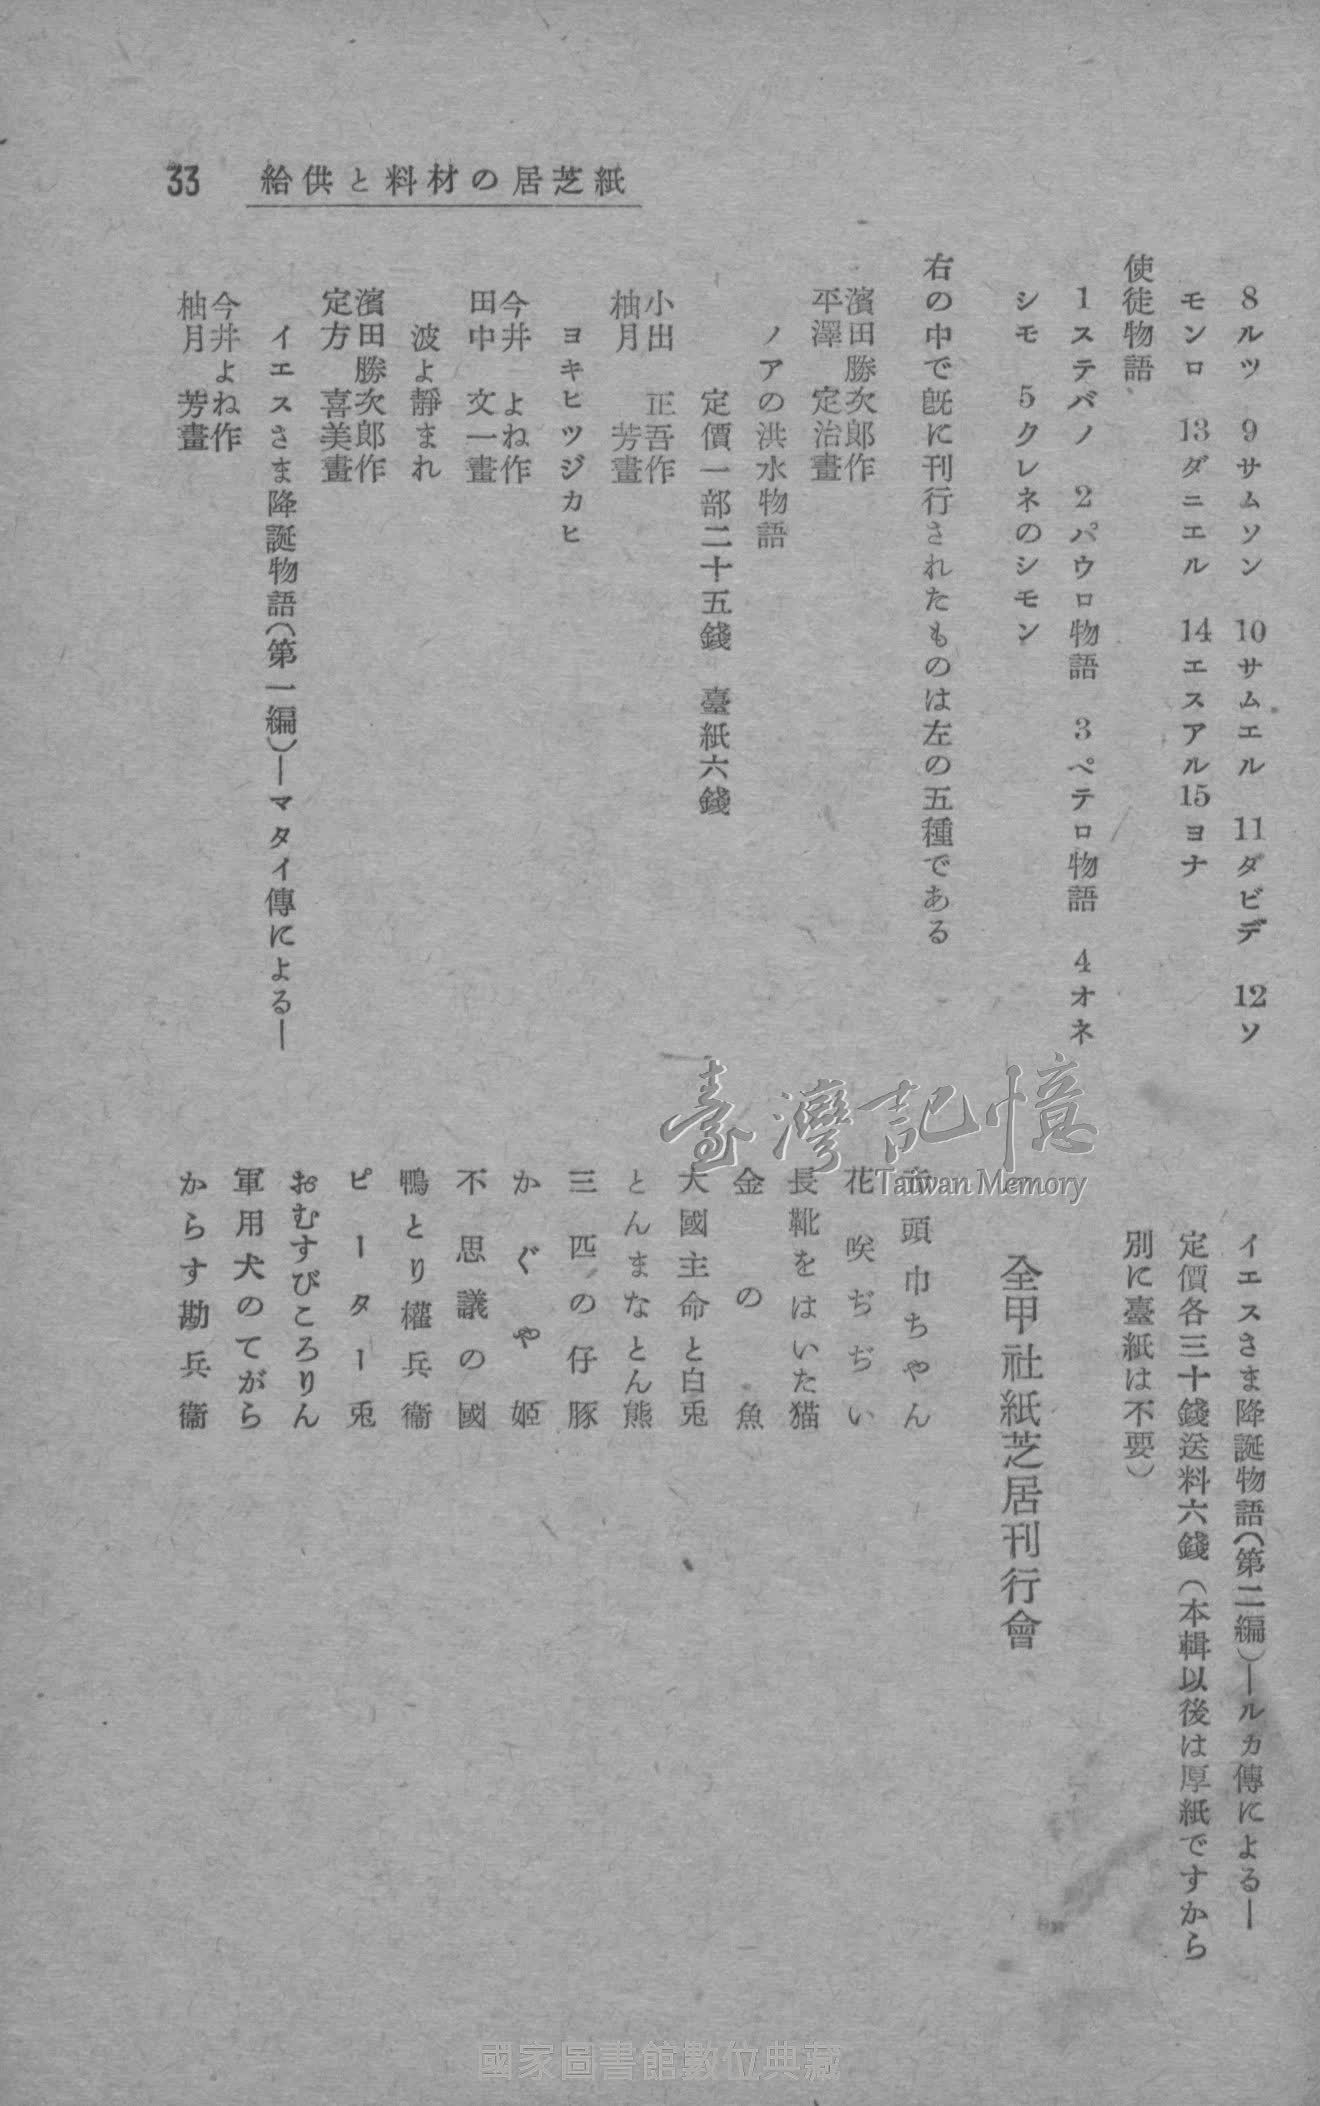 紙芝居の材料と供給
33
8ルツ　9サムソン　10サムエル　11ダビデ　12ソ
モンロ　13ダニエル　14エスアル15ヨナ
使徒物語
1ステバノ　2パウロ物語　3ペテロ物語　4オネ
シモ　5クレネのシモン
右の中で既に刊行されたものは左の五種である
濱田勝次郎作
平澤　定治畫
ノアの洪水物語
定價一部二十五錢　臺紙六錢
小出　正吾作
柚月　芳畫
ヨキヒツジカヒ
今井　よね作
田中　文一畫
波よ靜まれ
濱田勝次郎作
定方　喜美畫
イエスさま降誕物語(第一編)―マタイ傳による―
今井よね作
柚月　芳畫
イエスさま降誕物語(第二編)―ルカ傳による―
定價各三十錢送料六錢（本輯以後は厚紙ですから
別に臺紙は不要）
全甲社紙芝居刊行會
頭巾ちやん
花咲ぢぢい
長靴をはいた猫
金の魚
大國主命と白兎
とんまなとん熊
三匹の仔豚
かぐや姫
不思議の國
鴨とり權兵衞
ピーター兎
おむすびころりん
軍用犬のてがら
からす勘兵衞
臺灣記憶
Taiwan Memory
國家圖書館數位典藏